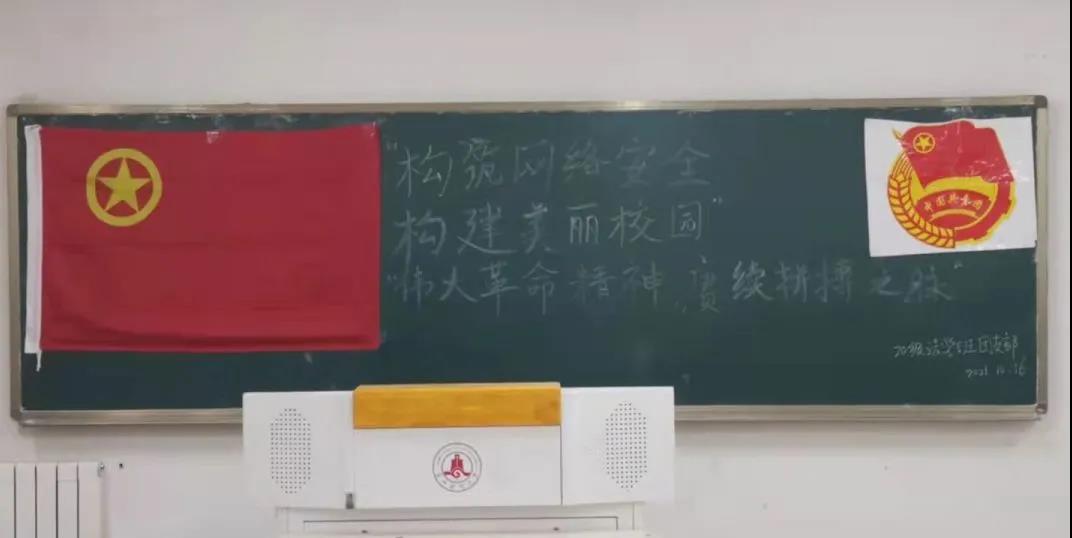 "构筑网络安全
构建美丽校园"
"伟人革命精神,赓续拼搏之脉"
中国共青团
20级法学2班团支部
2021.10.16